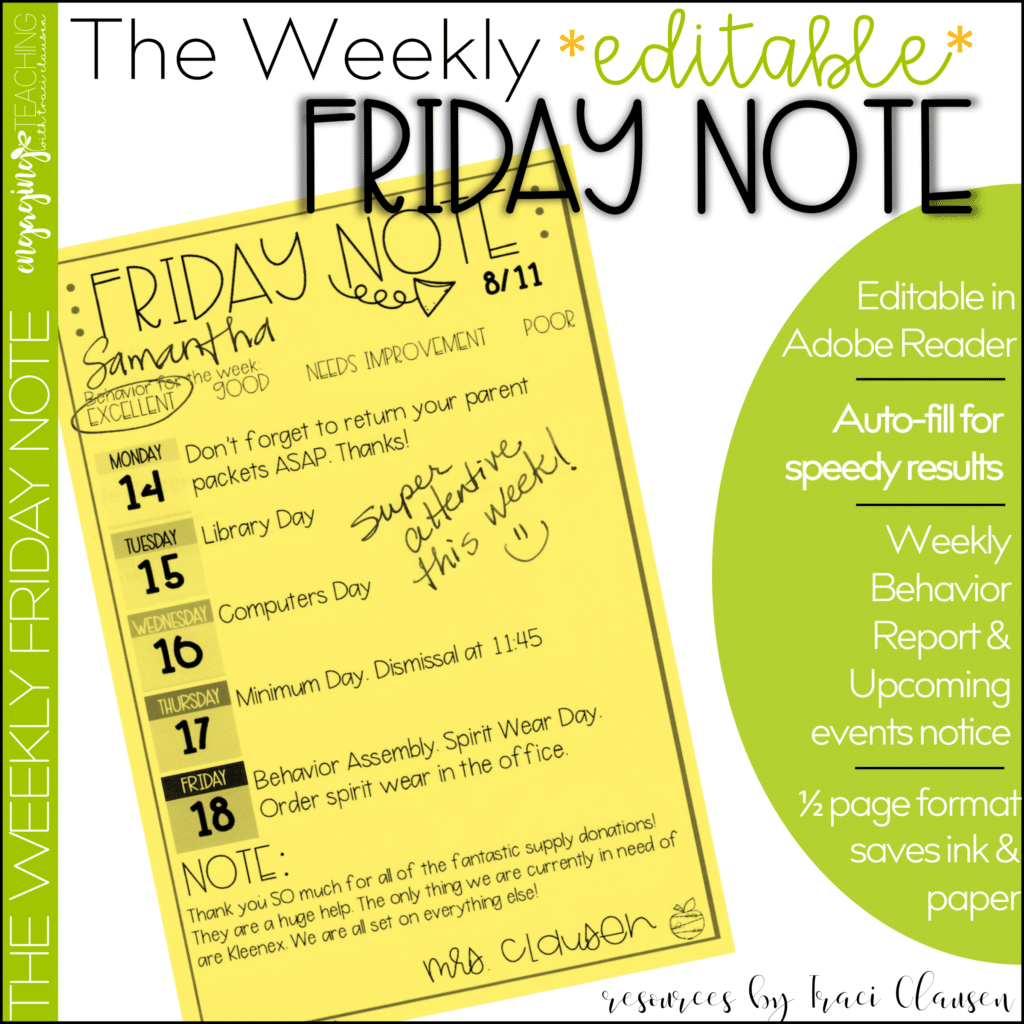 The Weekly *editable*
FRIDAY NOTE
engaging TEACHING
with traci clausen
THE WEEKLY FRIDAY NOTE
FRIDAY NOTE
8/11
Samantha
Behavior for the week:
EXCELLENT GOOD NEEDS IMPROVEMENT POOR
MONDAY
14
Don't forget to return your parent
packets ASAP. Thanks!
super
attentive
this week!
TUESDAY
15
Library Day
WEDNESDAY
16
Computers Day
THURSDAY
17
Minimum Day. Dismissal at 11:45
FRIDAY
18
Behavior Assembly. Spirit Wear Day.
Order spirit wear in the office.
NOTE:
Thank you SO much for all of the fantastic supply donations!
They are a huge help. The only thing we are currently in need of
are Kleenex. We are all set on everything else!
mrs. Clausen
Editable in
Adobe Reader
Auto-fill for
speedy results
Weekly
Behavior
Report &
Upcoming
events notice
½ page format
saves ink &
paper
resources by Traci Clausen